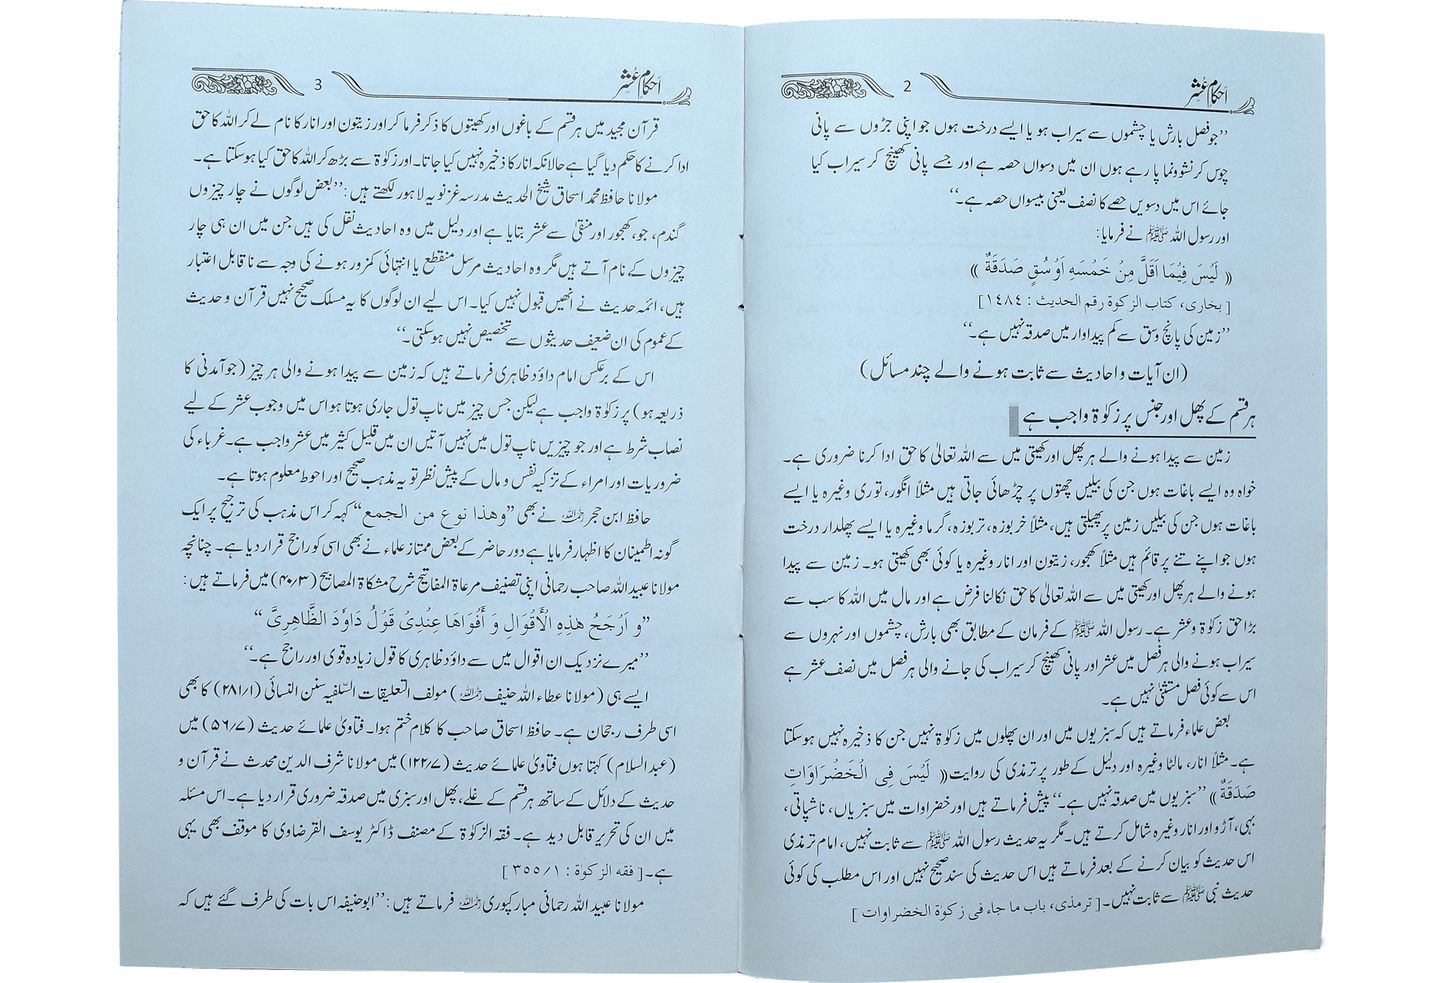 احکام عشر
2
’’جو فصل بارش یا چشموں سے سیراب ہو یا ایسے درخت ہوں جو اپنی جڑوں سے پانی
چوس کر نشوونما پا رہے ہوں ان میں دسواں حصہ ہے اور جسے پانی کھینچ کر سیراب کیا
جائے اس میں دسویں حصے کا نصف یعنی بیسواں حصہ ہے۔‘‘
اور رسول اللہ ﷺ نے فرمایا:
(( لَیْسَ فِیْمَا اَقَلَّ مِنْ خَمْسَهِ اَوْسُقٍ صَدَقَةٌ ))
[ بخاری، کتاب الزکوة رقم الحدیث : ۱٤۸٤ ]
’’زمین کی پانچ وسق سے کم پیداوار میں صدقہ نہیں ہے۔‘‘
(ان آیات و احادیث سے ثابت ہونے والے چند مسائل)
ہر قسم کے پھل اور جنس پر زکوۃ واجب ہے
زمین سے پیدا ہونے والے ہر پھل اور کھیتی میں سے اللہ تعالیٰ کا حق ادا کرنا ضروری ہے۔
خواہ وہ ایسے باغات ہوں جن کی بیلیں چھتوں پر چڑھائی جاتی ہیں مثلاً انگور، توری وغیرہ یا ایسے
باغات ہوں جن کی بیلیں زمین پر پھیلتی ہیں، مثلاً خربوزہ، تربوزہ، گرما وغیرہ یا ایسے پھلدار درخت
ہوں جو اپنے تنے پر قائم ہیں مثلاً کھجور، زیتون اور انار وغیرہ یا کوئی بھی کھیتی ہو۔ زمین سے پیدا
ہونے والے ہر پھل اور کھیتی میں سے اللہ تعالیٰ کا حق نکالنا فرض ہے اور مال میں اللہ کا سب سے
بڑا حق زکوۃ و عشر ہے۔ رسول اللہ ﷺ کے فرمان کے مطابق بھی بارش، چشموں اور نہروں سے
سیراب ہونے والی ہر فصل میں عشر اور پانی کھینچ کر سیراب کی جانے والی ہر فصل میں نصف عشر ہے
اس سے کوئی فصل مستثنیٰ نہیں ہے۔
بعض علماء فرماتے ہیں کہ سبزیوں میں اور ان پھلوں میں زکوۃ نہیں جن کا ذخیرہ نہیں ہوسکتا
ہے۔ مثلاً انار، مالٹا وغیرہ اور دلیل کے طور پر ترمذی کی روایت (( لَیْسَ فِی الْخَضْرَاوَاتِ
صَدَقَةٌ )) ’’سبزیوں میں صدقہ نہیں ہے۔‘‘ پیش فرماتے ہیں اور خضراوات میں سبزیاں، ناشپاتی،
بہی، آڑو اور انار وغیرہ شامل کرتے ہیں۔ مگر یہ حدیث رسول اللہ ﷺ سے ثابت نہیں، امام ترمذی
اس حدیث کو بیان کرنے کے بعد فرماتے ہیں اس حدیث کی سند صحیح نہیں اور اس مطلب کی کوئی
حدیث نبی ﷺ سے ثابت نہیں۔ [ ترمذی، باب ما جاء فی زکوٰة الخضراوات ]
احکام عشر
3
قرآن مجید میں ہر قسم کے باغوں اور کھیتوں کا ذکر فرما کر اور زیتون اور انار کا نام لے کر اللہ کا حق
ادا کرنے کا حکم دیا گیا ہے حالانکہ انار کا ذخیرہ نہیں کیا جاتا۔ اور زکوۃ سے بڑھ کر اللہ کا حق کیا ہوسکتا ہے۔
مولانا حافظ محمد اسحاق شیخ الحدیث مدرسہ غزنویہ لاہور لکھتے ہیں : ’’بعض لوگوں نے چار چیزوں
گندم، جو، کھجور اور منقی سے عشر بتایا ہے اور دلیل میں وہ احادیث نقل کی ہیں جن میں ان ہی چار
چیزوں کے نام آتے ہیں مگر وہ احادیث مرسل منقطع یا انتہائی کمزور ہونے کی وجہ سے ناقابل اعتبار
ہیں، ائمہ حدیث نے انھیں قبول نہیں کیا۔ اس لیے ان لوگوں کا یہ مسلک صحیح نہیں قرآن و حدیث
کے عموم کی ان ضعیف حدیثوں سے تخصیص نہیں ہوسکتی۔‘‘
اس کے برعکس امام داؤد ظاہری فرماتے ہیں کہ زمین سے پیدا ہونے والی ہر چیز (جو آمدنی کا
ذریعہ ہو) پر زکوۃ واجب ہے لیکن جس چیز میں ناپ تول جاری ہوتا ہو اس میں وجوب عشر کے لیے
نصاب شرط ہے اور جو چیزیں ناپ تول میں نہیں آتیں ان میں قلیل کثیر میں عشر واجب ہے۔ غرباء کی
ضروریات اور امراء کے تزکیہ نفس و مال کے پیش نظر تو یہ مذہب صحیح اور احوط معلوم ہوتا ہے۔
حافظ ابن حجر رحمہ اللہ نے بھی ’’وهذا نوع من الجمع‘‘ کہہ کر اس مذہب کی ترجیح پر ایک
گونہ اطمینان کا اظہار فرمایا ہے دور حاضر کے بعض ممتاز علماء نے بھی اسی کو راجح قرار دیا ہے۔ چنانچہ
مولانا عبید اللہ صاحب رحمانی اپنی تصنیف مرعاۃ المفاتیح شرح مشکاۃ المصابیح (۴۰/۳) میں فرماتے ہیں :
’’و اَرْجَحُ هٰذِهِ الْأَقْوَالِ وَ أَقْوَاهَا عِنْدِیْ قَوْلُ دَاوٗدَ الظَّاهِرِیَّ ‘‘
’’میرے نزدیک ان اقوال میں سے داؤد ظاہری کا قول زیادہ قوی اور راجح ہے۔‘‘
ایسے ہی (مولانا عطاء اللہ حنیف رحمہ اللہ) مولف التعلیقات السلفیہ سنن النسائی (۲۸۱/۱) کا بھی
اسی طرف رجحان ہے۔ حافظ اسحاق صاحب کا کلام ختم ہوا۔ فتاویٰ علمائے حدیث (۵۶/۷) میں
(عبدالسلام) کہتا ہوں فتاویٰ علمائے حدیث (۱۲۲/۷) میں مولانا شرف الدین محدث نے قرآن و
حدیث کے دلائل کے ساتھ ہر قسم کے غلے، پھل اور سبزی میں صدقہ ضروری قرار دیا ہے۔ اس مسئلہ
میں ان کی تحریر قابل دید ہے۔ فقہ الزکوۃ کے مصنف ڈاکٹر یوسف القرضاوی کا موقف بھی یہی
ہے۔ [ فقه الزکوٰة : ۳۵۵/۱ ]
مولانا عبید اللہ رحمانی مبارکپوری رحمہ اللہ فرماتے ہیں : ’’ابوحنیفہ اس بات کی طرف گئے ہیں کہ